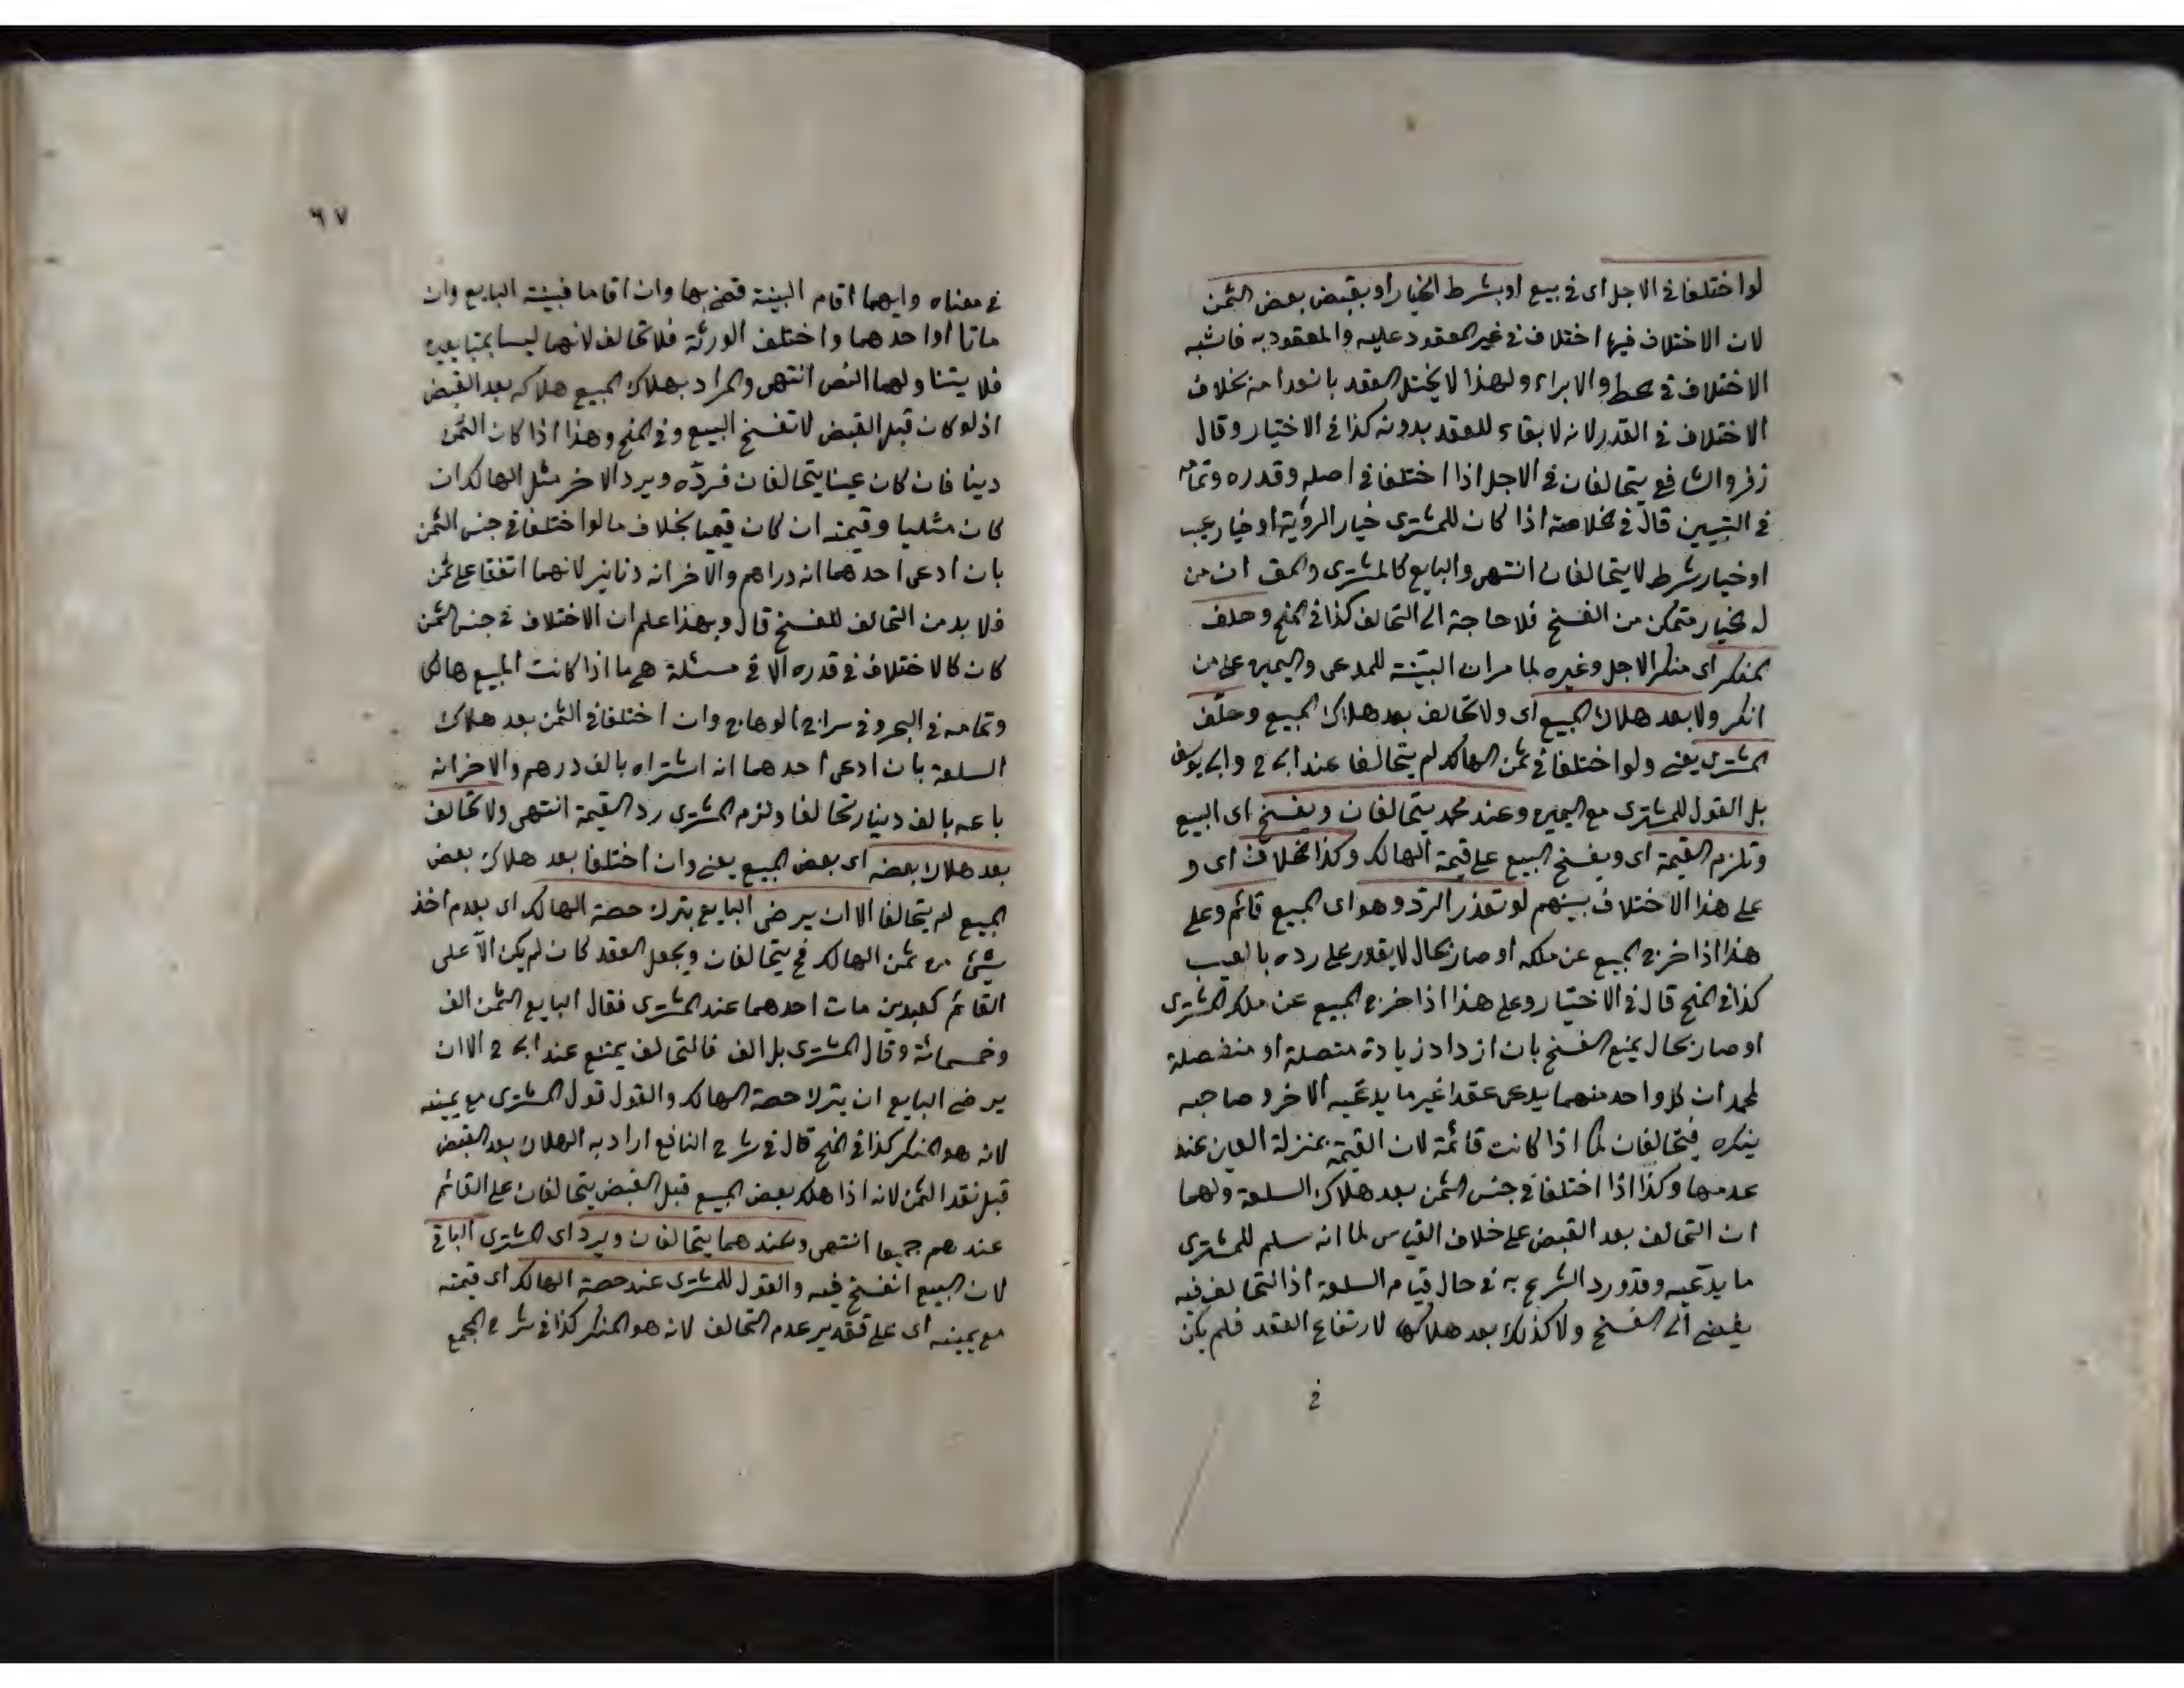 لو اختلفا في الاجل اى في بيع او بشرط الخيار او بقبض بعض الثمن
لان الاختلاف فيها اختلاف في غير المعقود عليه والمعقود به فاشبه
الاختلاف في الحط والابراء ولهذا لا يختل العقد بانعدامه بخلاف
الاختلاف في القدر لانه لا بقاء للعقد بدونه كذا في الاختيار وقال
زفر والشافعي يتحالفان في الاجل اذا اختلفا في اصله وقدره وتمامه
في التبيين قال في الخلاصة اذا كان للمشترى خيار الرؤية او خيار عيب
او خيار شرط لا يتحالفان انتهى والبايع كالمشترى والمق ان من
له الخيار متمكن من الفسخ فلا حاجة الى التحالف كذا في المنح وحلف
المنكر اى منكر الاجل وغيره لما مر ان البيّنة للمدعى واليمين على من
انكر ولا بعد هلاك المبيع اى ولا تحالف بعد هلاك المبيع وحلّف
المشترى يعنى ولو اختلفا في ثمن الهالك لم يتحالفا عند ابى ح وابى يوسف
بل القول للمشترى مع اليمين وعند محمد يتحالفان ويفسخ اى البيع
وتلزم القيمة اى ويفسخ البيع على قيمة الهالك وكذا الخلاف اى و
على هذا الاختلاف بينهم لو تعذر الردّ وهو اى المبيع قائم وعلى
هذا اذا خرج المبيع عن ملكه او صار بحال لا يقدر على رده بالعيب
كذا في المنح قال في الاختيار وعلى هذا اذا خرج المبيع عن ملك المشترى
او صار بحال يمنع الفسخ بان ازداد زيادة متصلة او منفصلة
لمحمد ان كل واحد منهما يدعى عقدا غير ما يدعيه الاخر وصاحبه
ينكره فيتحالفان كما اذا كانت قائمة لان القيمة بمنزلة العين عند
عدمها وكذا اذا اختلفا في جنس الثمن بعد هلاك السلعة ولهما
ان التحالف بعد القبض على خلاف القياس لما انه سلم للمشترى
ما يدّعيه وقد ورد الشرع به في حال قيام السلعة اذ التحالف فيه
يفضى الى الفسخ ولا كذلك بعد هلاكها لارتفاع العقد فلم يكن
في
٦٧
في معناه وايهما اقام البينة قضى بها وان اقاما فبينة البايع وان
ماتا او احدهما واختلف الورثة فلا تحالف لانهما ليسا بمتبايعين
فلا يتناولهما النص انتهى والمراد بهلاك المبيع هلاكه بعد القبض
اذ لو كان قبل القبض لانفسخ البيع وفي المنح وهذا اذا كان الثمن
دينا فان كان عينا يتحالفان فردّه ويرد الاخر مثل الهالك ان
كان مثليا وقيمته ان كان قيميا بخلاف ما لو اختلفا في جنس الثمن
بان ادعى احدهما انه دراهم والاخر انه دنانير لانهما اتفقا على ثمن
فلا بد من التحالف للفسخ قال وبهذا علم ان الاختلاف في جنس الثمن
كان كالاختلاف في قدره الا في مسئلة هى ما اذا كانت المبيع هالكا
وتمامه في البحر وفي سراج الوهاج وان اختلفا في الثمن بعد هلاك
السلعة بان ادعى احدهما انه اشتراه بالف درهم والاخر انه
باعه بالف دينار تحالفا ولزم المشترى رد القيمة انتهى ولا تحالف
بعد هلاك بعضه اى بعض المبيع يعنى وان اختلفا بعد هلاك بعض
المبيع لم يتحالفا الا ان يرضى البايع بترك حصة الهالك اى بعدم اخذ
شئ من ثمن الهالك فح يتحالفان ويجعل العقد كان لم يكن الا على
القائم كعبدين مات احدهما عند المشترى فقال البايع الثمن الف
وخمسمائة وقال المشترى بل الف فالتحالف يمتنع عند ابى ح الا ان
يرضى البايع ان يترك حصة الهالك والقول قول المشترى مع يمينه
لانه هو المنكر كذا في المنح قال في شرح النافع اراد به الهلاك بعد القبض
قبل نقد الثمن لانه اذا هلك بعض المبيع قبل القبض يتحالفان على القائم
عندهم جميعا انتهى وعندهما يتحالفان ويرد اى المشترى الباقى
لان البيع انفسخ فيه والقول للمشترى عند حصة الهالك اى قيمته
مع يمينه اى على تقدير عدم التحالف لانه هو المنكر كذا في شرح المجمع